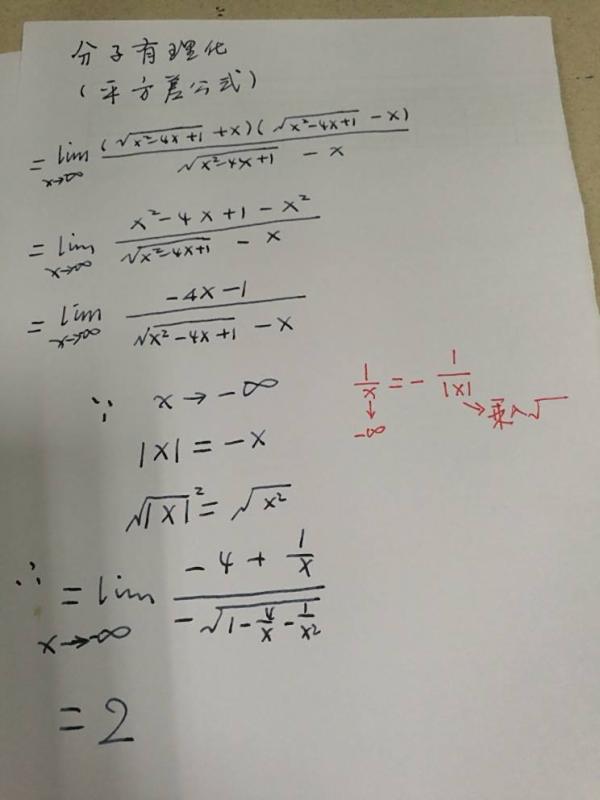 分子有理化
(平方差公式)
= lim x→∞ (√(x²-4x+1) + x)(√(x²-4x+1) - x) / (√(x²-4x+1) - x)
= lim x→∞ (x²-4x+1-x²) / (√(x²-4x+1) - x)
= lim x→∞ (-4x-1) / (√(x²-4x+1) - x)
∵ x→-∞
1/x = - 1/|x|
↓ -∞ → 乘入√
|x| = -x
√|x|² = √x²
∴ = lim x→-∞ (-4 + 1/x) / (-√(1 - 4/x - 1/x²))
= 2